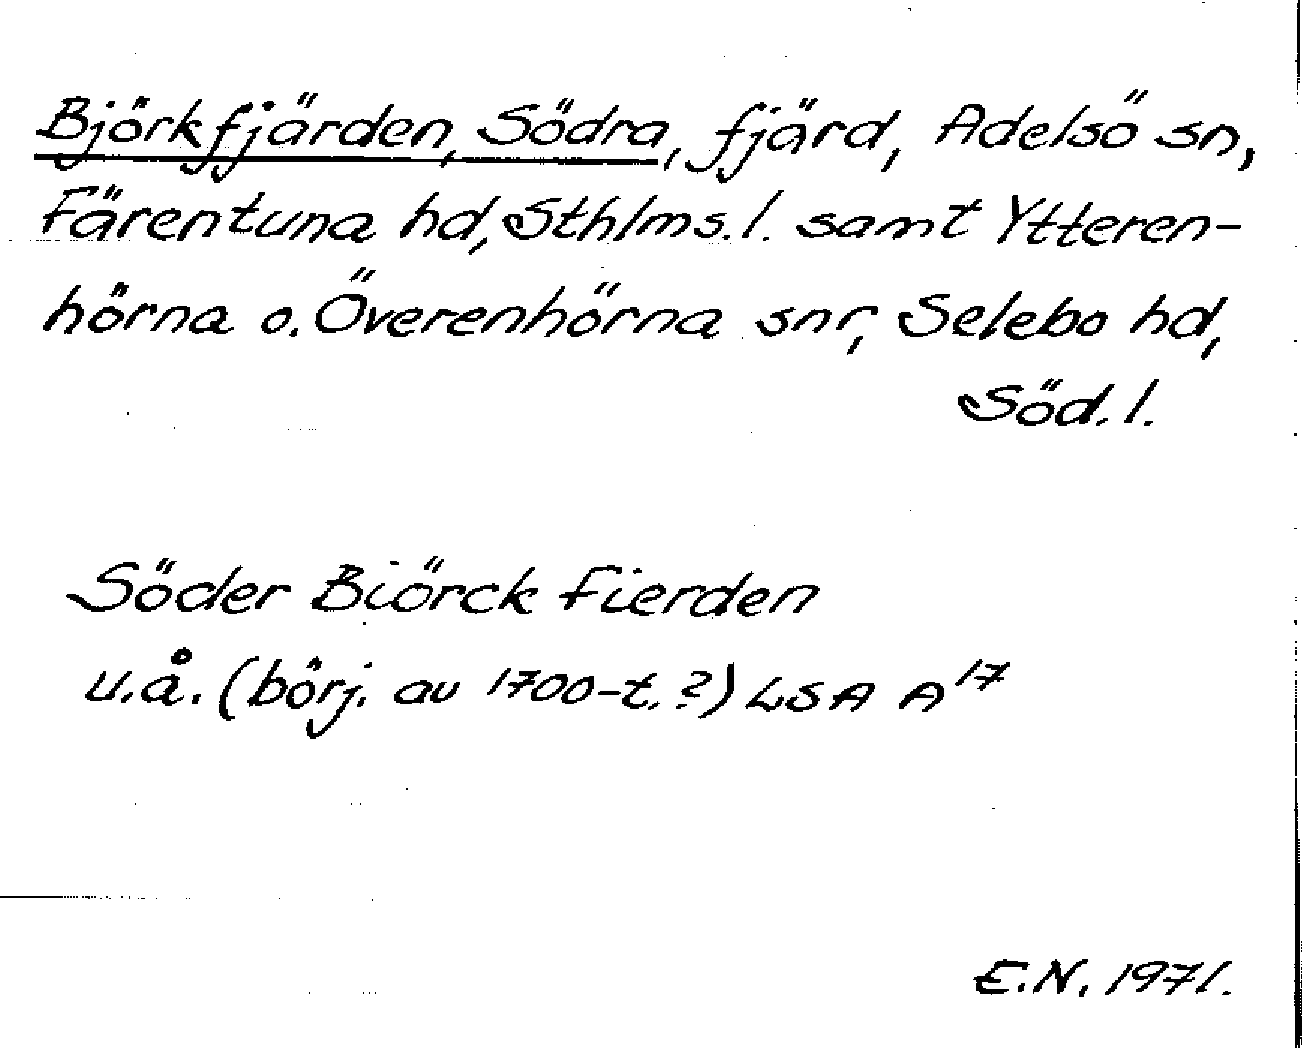 Björkfjärden, Södra, fjärd, Adelsö sn,
Färentuna hd, Sthlms.l. samt Ytteren-
hörna o. Överenhörna snr, Selebo hd,
Söd.l.
Söder Biörck Fierden
u.å. (börj. av 1700-t.?) LSA A¹⁷
E.N. 1971.